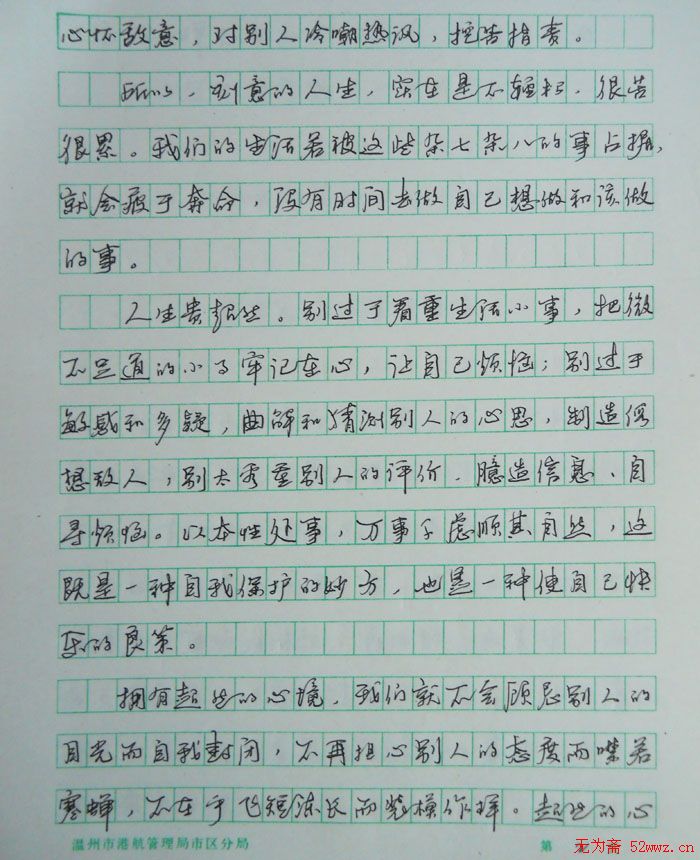 心怀敌意，对别人冷嘲热讽，控告指责。
所以，刻意的人生，实在是不轻松，很苦
很累。我们的生活若被这些杂七杂八的事占据，
就会疲于奔命，没有时间去做自己想做和该做
的事。
人生贵超然。别过于看重生活小事，把微
不足道的小事牢记在心，让自己烦恼；别过于
敏感和多疑，曲解和猜测别人的心思，制造假
想敌人；别太看重别人的评价，臆造信息，自
寻烦恼。以本性处事，万事不虑顺其自然，这
既是一种自我保护的妙方，也是一种使自己快
乐的良策。
拥有超然的心境，我们就不会顾忌别人的
目光而自我封闭，不再担心别人的态度而噤若
寒蝉，不在乎飞短流长而装模作样。超然的心
温州市港航管理局市区分局 第
无为斋 52wwz.cn